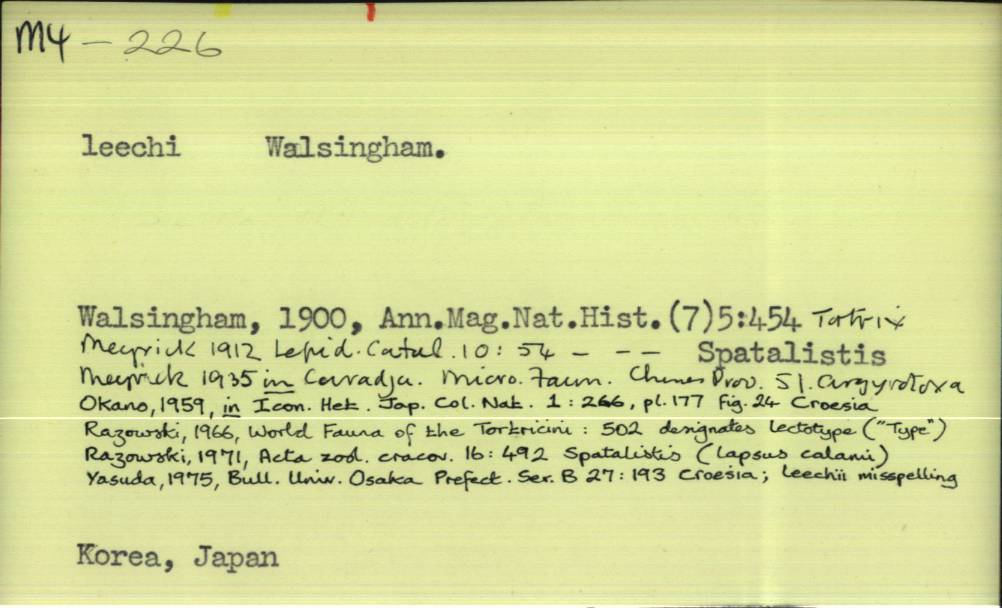 M4 – 226
leechi Walsingham.
Walsingham, 1900, Ann.Mag.Nat.Hist.(7)5:454 Tortrix
Meyrick 1912 Lepid. Catal. 10 : 54 – – – Spatalistis
Meyrick 1935 in Caradja. Micro. Faun. Chines Prov. 51. Argyrotoxa
Okano, 1959, in Icon. Het. Jap. Col. Nat. 1 : 266, pl. 177 fig. 24 Croesia
Razowski, 1966, World Fauna of the Tortricini : 502 designates lectotype ("Type")
Razowski, 1971, Acta zool. cracov. 16 : 492 Spatalistis (lapsus calami)
Yasuda, 1975, Bull. Univ. Osaka Prefect. Ser. B 27 : 193 Croesia; leechii misspelling
Korea, Japan